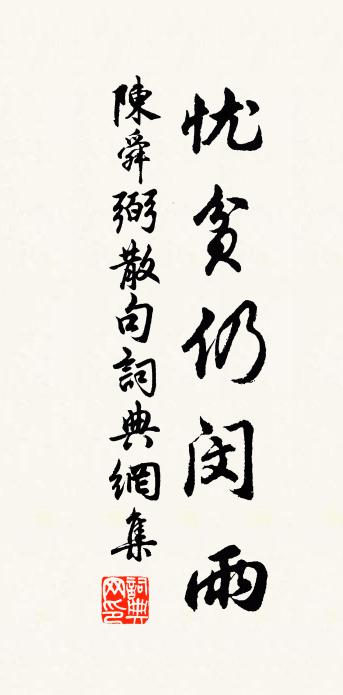 忧貧仍闵雨
陳舜弼散句詞典網集
詞典网印